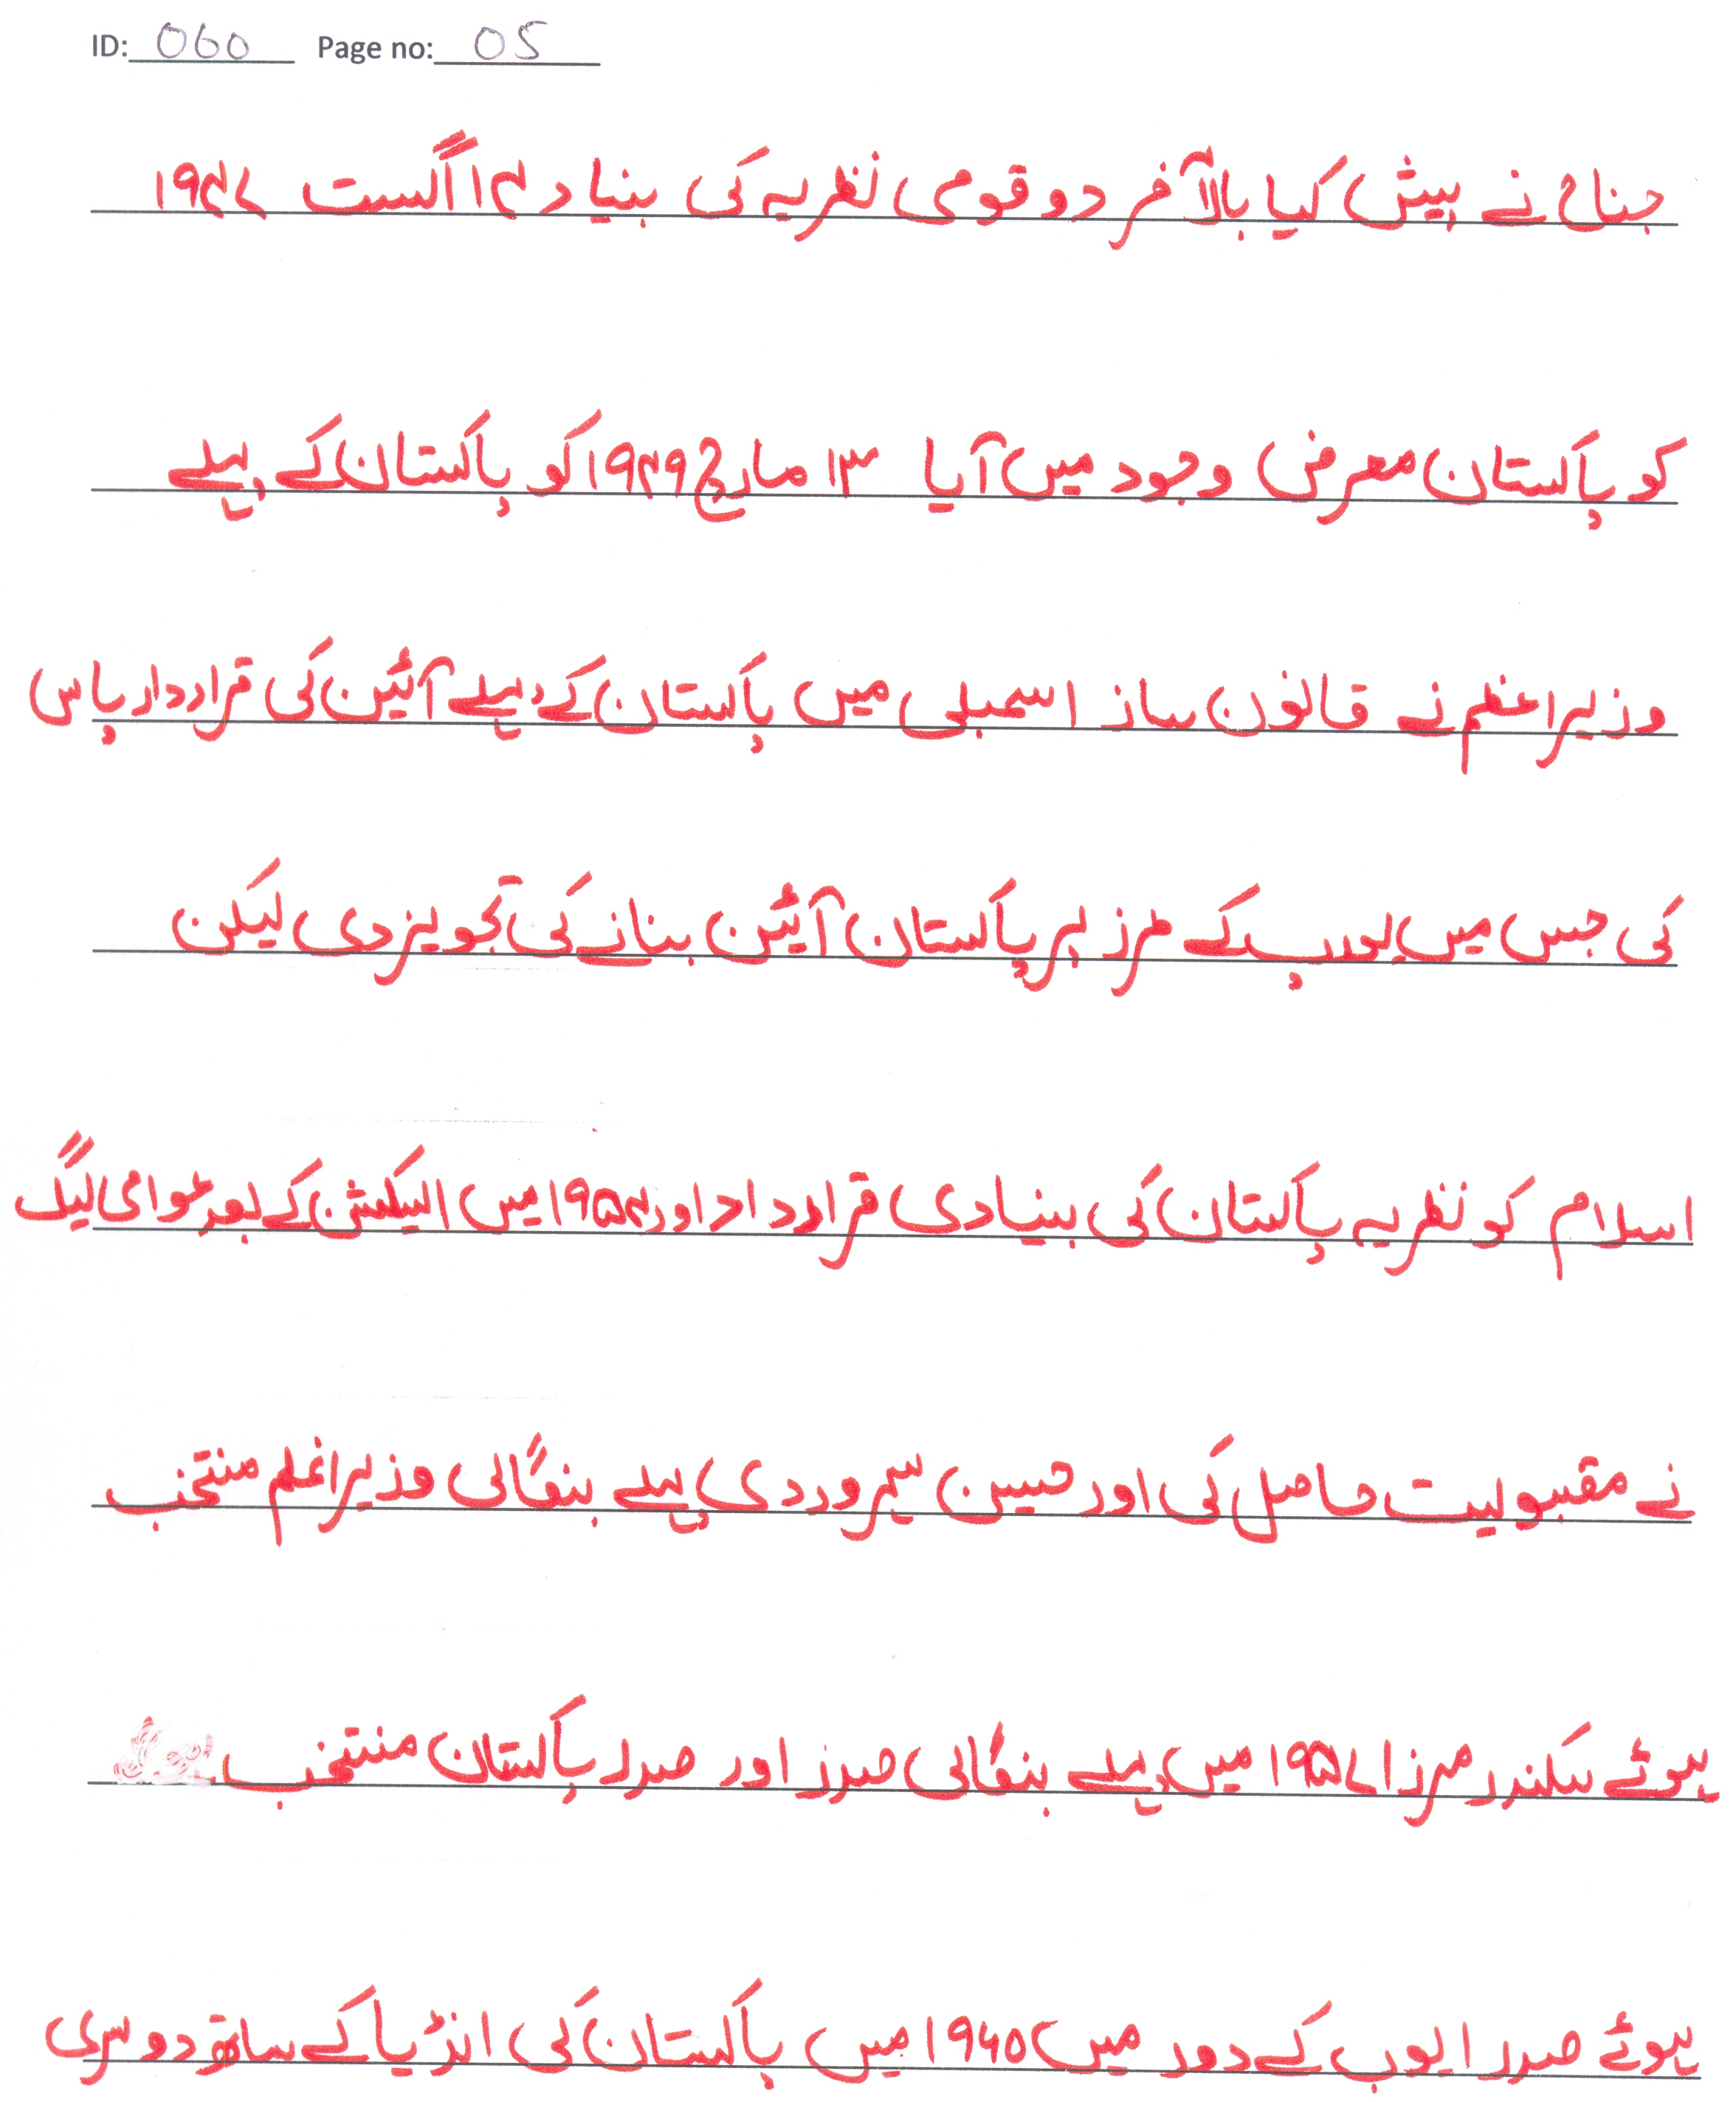 ID: 060 Page no: 05
جناح نے پیش کیا بالآخر دو قومی نظریہ کی بنیاد ۱۴ اگست ۱۹۴۷
کو پاکستان معرض وجود میں آیا ۱۳ مارچ ۱۹۴۹ کو پاکستان کے پہلے
وزیراعظم نے قانون ساز اسمبلی میں پاکستان کے پہلے آئین کی قراردار پاس
کی جس میں یورپ کے طرز پر پاکستان آئین بنانے کی تجویز دی لیکن
اسلام کو نظریہ پاکستان کی بنیادی قرارداد اور ۱۹۵۴ میں الیکشن کے بعد عوامی لیگ
نے مقبولیت حاصل کی اور حسین سہروردی پہلے بنگالی وزیراعظم منتخب
ہوئے سکندر مرزا ۱۹۵۷ میں پہلے بنگالی صدر اور صدر پاکستان منتخب
ہوئے صدر ایوب کے دور میں ۱۹۶۵ میں پاکستان کی انڈیا کے ساتھ دوسری